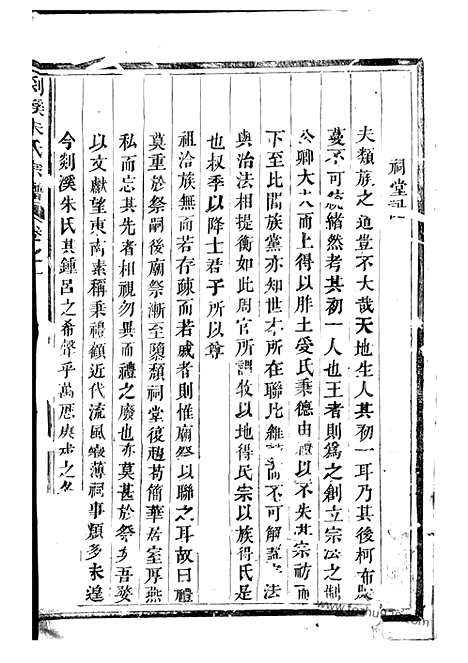 祠堂記
夫類族之道豈不大哉天地生人其初一耳乃其後柯布
蔓不可統緒然考其初一人也王者則爲之創立宗法之制
公卿大夫而上得以胙土爰氏秉德由禮以不失其宗祊而
下至比閭族黨亦知世才所在聯比雜 不可解 法
與治法相提衡如此周官所謂牧以地得民宗以族得民是
也权季以降士君子所以尊
祖洽族無而若存疎而若戚者則惟廟祭以聯之耳故曰禮
莫重於祭嗣後廟祭漸至隳類祠堂復趋苟簡華居室厚燕
私而忘其先者相視勿異而禮之廢也亦莫甚於祭 吾婺
以文獻望東南素稱秉禮顧近代流風寢薄祠事類多未遑
今剡溪朱氏其鍾呂之希聲乎萬歷庚戌之冬
剡溪朱氏宗譜 卷之一